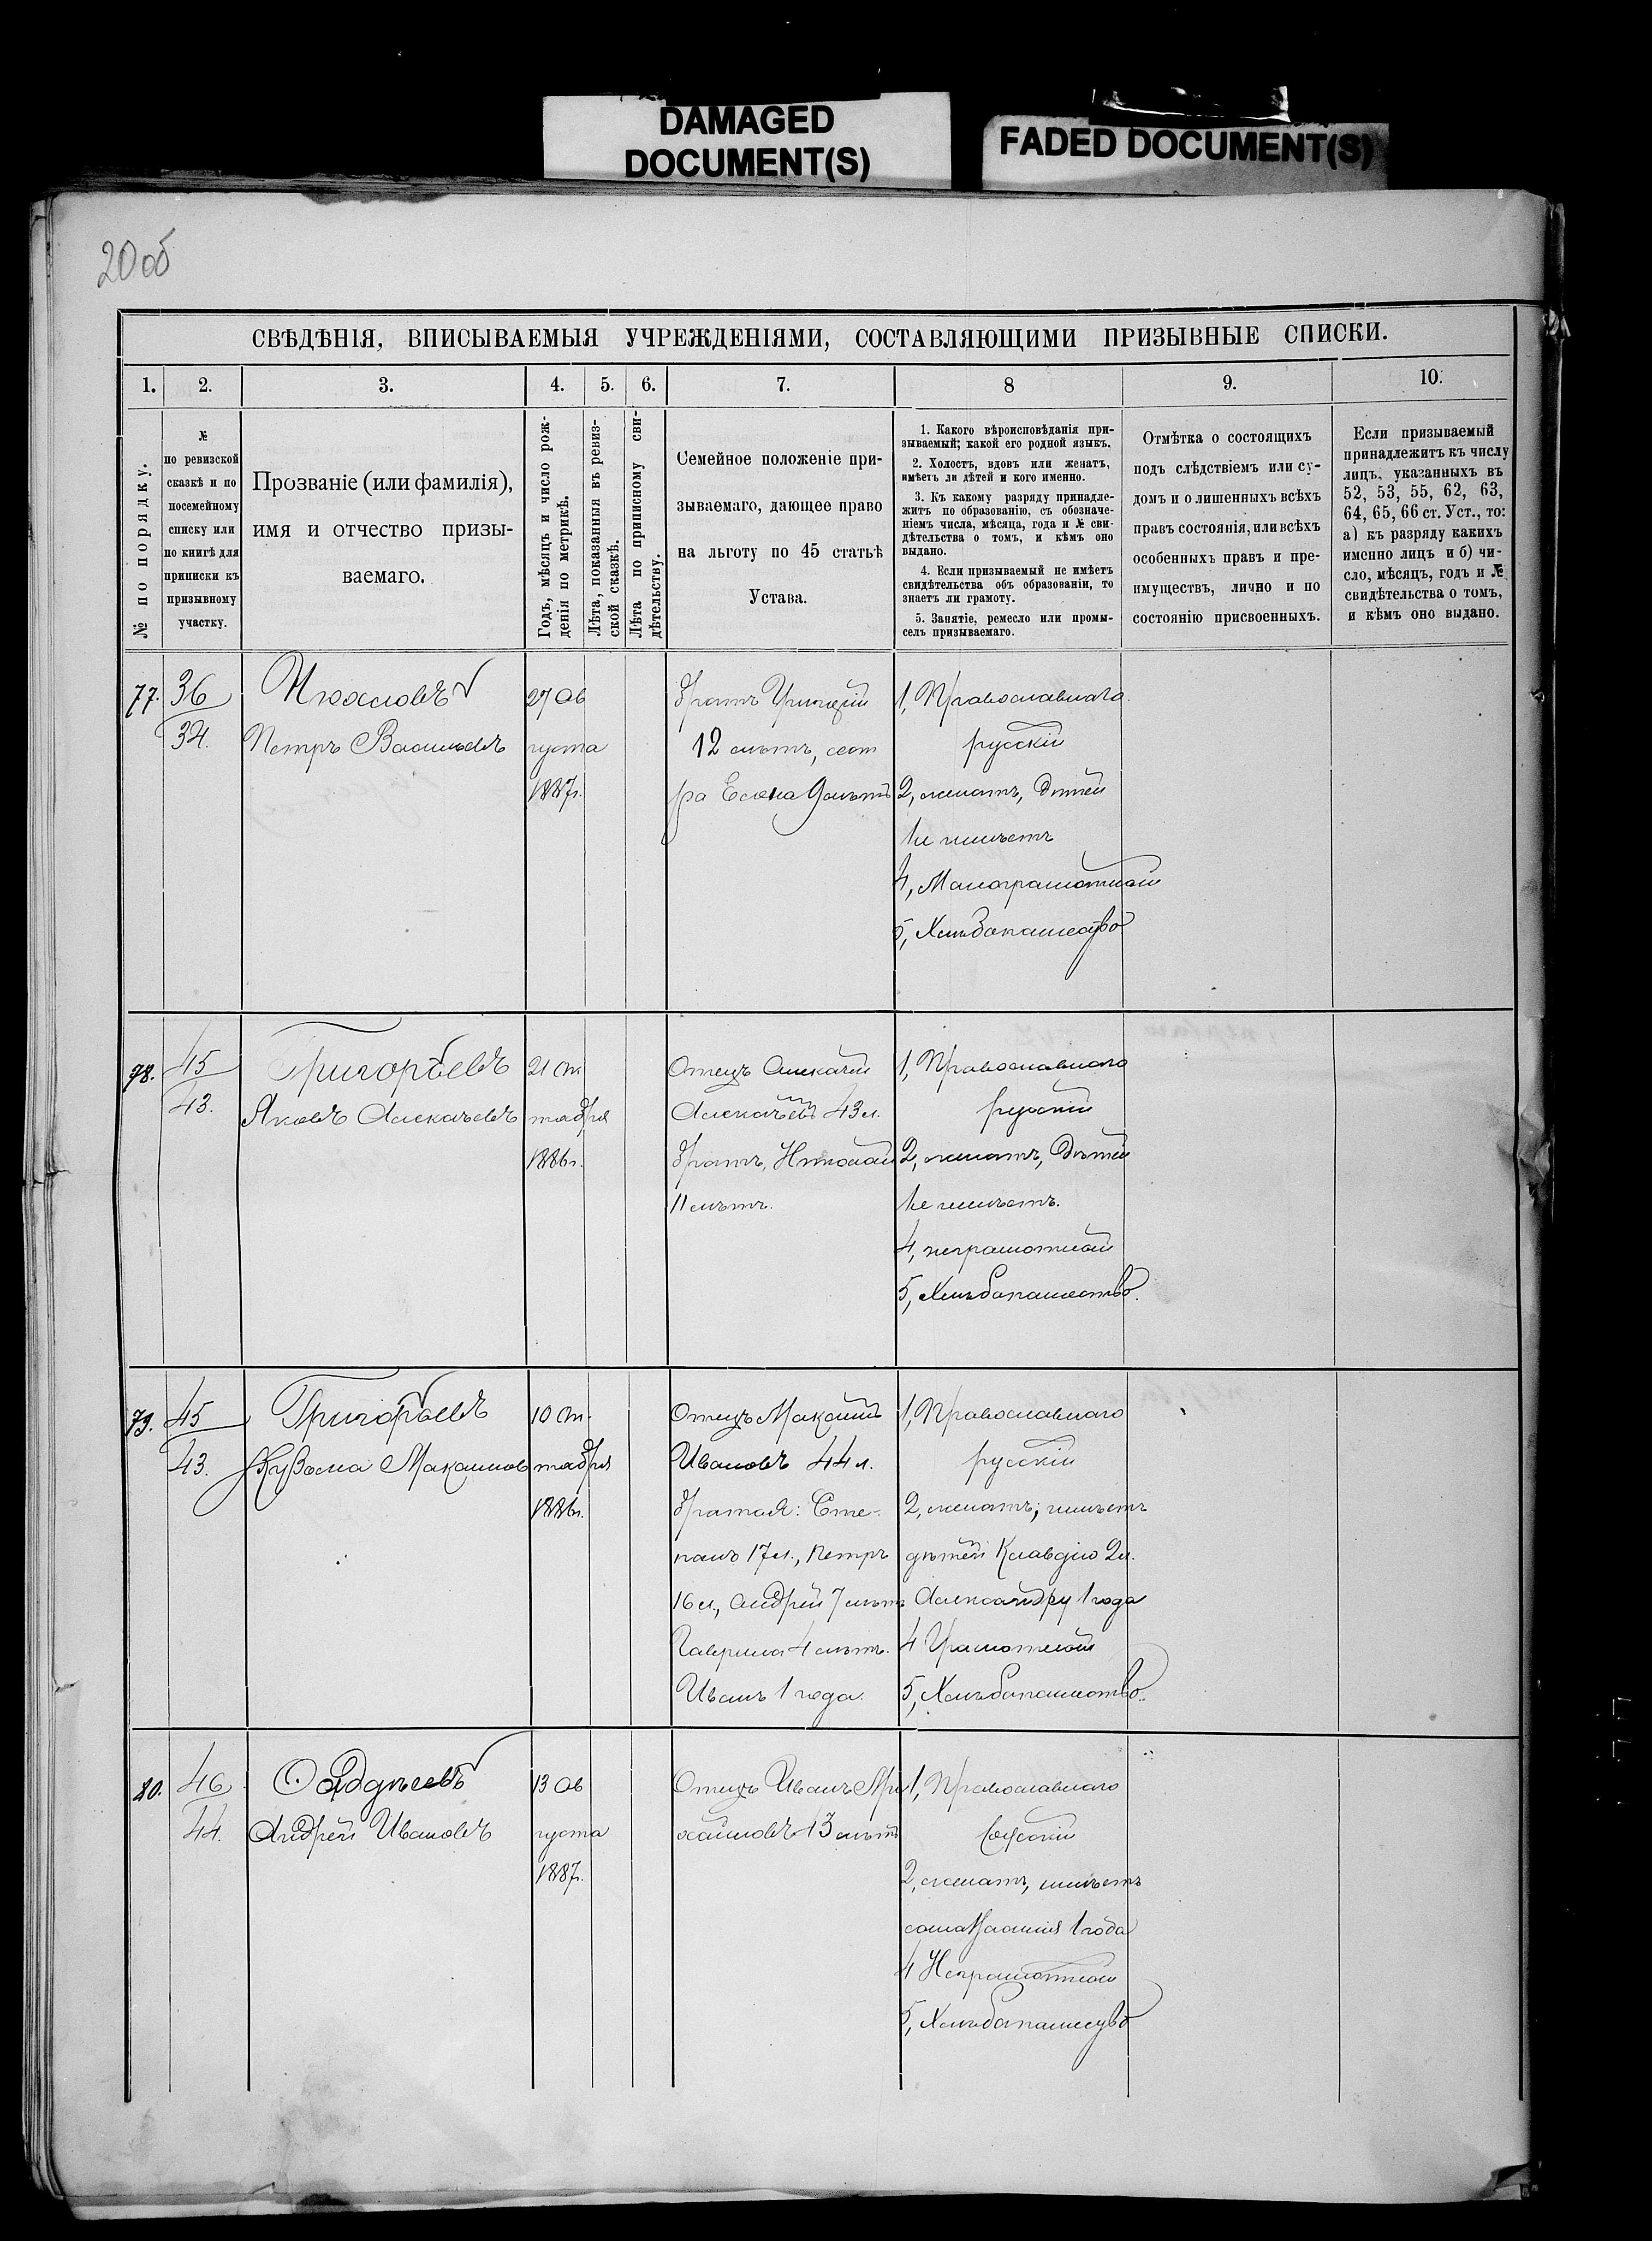 DAMAGED
DOCUMENT(S)
FADED DOCUMENT(S)
20 об
СВѢДѢНІЯ, ВПИСЫВАЕМЫЯ УЧРЕЖДЕНІЯМИ, СОСТАВЛЯЮЩИМИ ПРИЗЫВНЫЕ СПИСКИ.
1. 2. 3. 4. 5. 6. 7. 8 9. 10.
№ по порядку.
№
по ревизской
сказкѣ и по
посемейному
списку или
по книгѣ для
приписки къ
призывному
участку.
Прозваніе (или фамилія),
имя и отчество призы-
ваемаго.
Годъ, мѣсяцъ и число рож-
денія по метрикѣ.
Лѣта, показанныя въ ревиз-
ской сказкѣ.
Лѣта по приписному сви-
дѣтельству.
Семейное положеніе при-
зываемаго, дающее право
на льготу по 45 статьѣ
Устава.
1. Какого вѣроисповѣданія при-
зываемый; какой его родной языкъ.
2. Холостъ, вдовъ или женатъ,
имѣетъ ли дѣтей и кого именно.
3. Къ какому разряду принадле-
житъ по образованію, съ обозначе-
ніемъ числа, мѣсяца, года и № сви-
дѣтельства о томъ, и кѣмъ оно
выдано.
4. Если призываемый не имѣетъ
свидѣтельства объ образованіи, то
знаетъ ли грамоту.
5. Занятіе, ремесло или промы-
селъ призываемаго.
Отмѣтка о состоящихъ
подъ слѣдствіемъ или су-
домъ и о лишенныхъ всѣхъ
правъ состоянія, или всѣхъ
особенныхъ правъ и пре-
имуществъ, лично и по
состоянію присвоенныхъ.
Если призываемый
принадлежитъ къ числу
лицъ, указанныхъ въ
52, 53, 55, 62, 63,
64, 65, 66 ст. Уст., то:
а) къ разряду какихъ
именно лицъ и б) чи-
сло, мѣсяцъ, годъ и №
свидѣтельства о томъ,
и кѣмъ оно выдано.
77.
36
34.
Петръ Васильевъ
27 Ав
густа
1887г.
братъ Григорій
12 лѣтъ, сест
ра 9 лѣтъ
1, Православнаго
русскій
2, женатъ, дѣтей
не имѣетъ
4, Малограмотный
5, Хлѣбопашество
78.
45
43.
Григорьевъ
Яковъ Алексѣевъ
21 Ок
тября
1886г.
Отецъ Алексѣй
Алексѣевъ 43 л.
братъ, Николай
11 лѣтъ.
1, Православнаго
русскій
2, женатъ, дѣтей
не имѣетъ.
4, неграмотный
5, Хлѣбопашество.
79.
45
43.
Григорьевъ
Кузьма Максимов
10 Ок
тября
1886г.
Отецъ Максимъ
Ивановъ 44 л.
братья: Сте-
панъ 17 л., Петръ
16 л., Андрей 7 лѣтъ
Гаврила 4 лѣтъ.
Иванъ 1 года.
1, Православнаго
русскій
2, женатъ, имѣетъ
дѣтей Клавдію 2 л.
Александру 1 года
4 Грамотный
5, Хлѣбопашество.
80.
46
44.
Андрей Ивановъ
13 Ав
густа
1887г.
Отецъ Иванъ
43 лѣтъ
1, Православнаго
русскій
2, женатъ, имѣетъ
1 года
4 Неграмотный
5, Хлѣбопашество